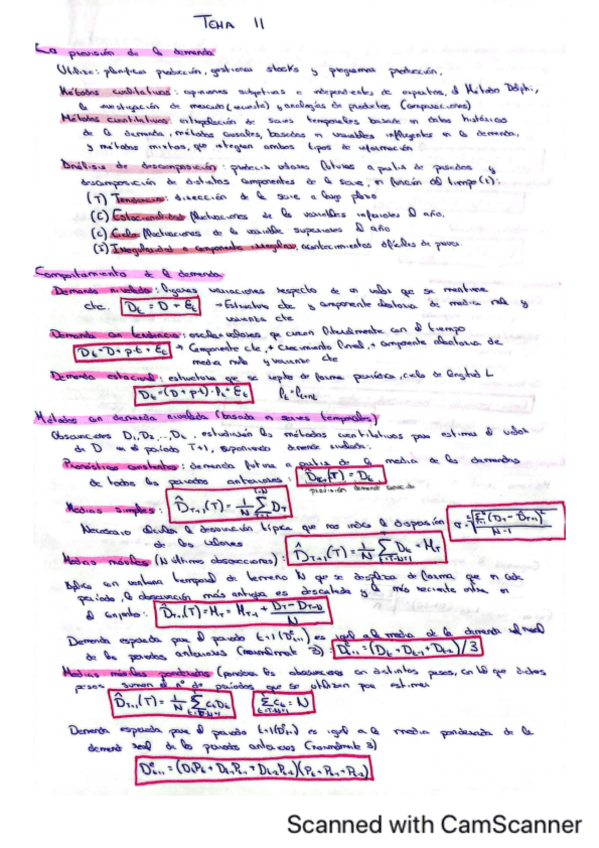 TEMA 11
La previsión de la demanda
Utilizo: planificar producción, gestionar stocks y programar producción.
Métodos cualitativos: opiniones subjetivas e independientes de expertos, el Método Delphi,
la investigación de mercado (encuesta) y analogías de productos (comparaciones)
Métodos cuantitativos: extrapolación de series temporales basada en datos históricos
de la demanda, métodos causales, basados en variables influyentes en la demanda,
y métodos mixtos, que integran ambos tipos de información
Análisis de descomposición: predecir valores futuros a partir de pasados y
descomposición de distintas componentes de la serie, en función del tiempo (t):
(T) Tendencia: dirección de la serie a largo plazo
(E) Estacionalidad: fluctuaciones de las variables inferiores al año.
(C) Ciclo: fluctuaciones de la variable superiores al año
(I) Irregularidad o componente irregular, acontecimientos difíciles de prever.
Comportamiento de la demanda
Demanda nivelada: ligeras variaciones respecto de un valor que se mantiene
cte. Dt = D + Et → Estructura cte y componente aleatoria de media nula y
varianza cte
Demanda con tendencia: oscila valores que crecen linealmente con el tiempo
Dt = D + p·t + Et → Componente cte, + crecimiento lineal, + componente aleatoria de
media nula y varianza cte
Demanda estacional: estructura que se repite de forma periódica, ciclo de longitud L
Dt = (D + p·t)·ft + Et
Métodos con demanda nivelada (basada en series temporales)
Observaciones D1, D2, ..., Dt, estudiarán los métodos cuantitativos para estimar el valor
de D en el período T+1, suponiendo demanda nivelada:
Pronósticos constantes: demanda futura a partir de la media de las demandas
de todos los períodos anteriores:
Medias simples: D̂T+1(T) = 1/N Σ DT
Necesario calcular la desviación típica que nos indica la dispersión
de los valores
Medias móviles (N últimas observaciones): D̂T+1(T) = 1/N Σ Dt = MT
Aplica una ventana temporal de tamaño N que se desplaza de forma que en cada
período, la observación más antigua es descartada y la más reciente entra en
el conjunto: D̂T+1(T) = MT = MT-1 + (DT - DT-N)/N
Demanda esperada para el período t+1 es igual a la media de la demanda real
de los períodos anteriores (normalmente 3): = (Dt + Dt-1 + Dt-2)/3
Medias móviles ponderadas (pondera las observaciones con distintos pesos, con lo que dichos
pesos suman el nº de períodos que se utilizan para estimar
D̂T+1(T) = 1/N Σ ctDt Σ ct = N
Demanda esperada para el período t+1 es igual a la media ponderada de la
demanda real de los períodos anteriores (normalmente 3)
Scanned with CamScanner